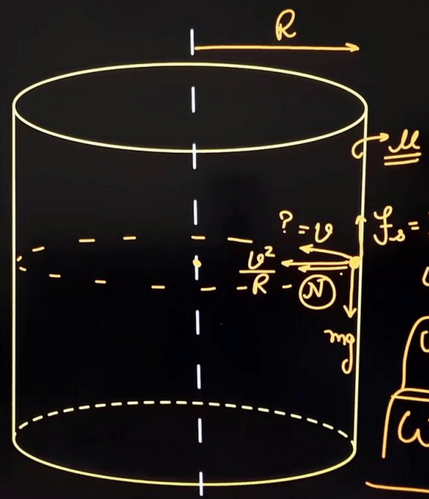 R
μ
? = v
f_s =
v²/R
N
mg
ω